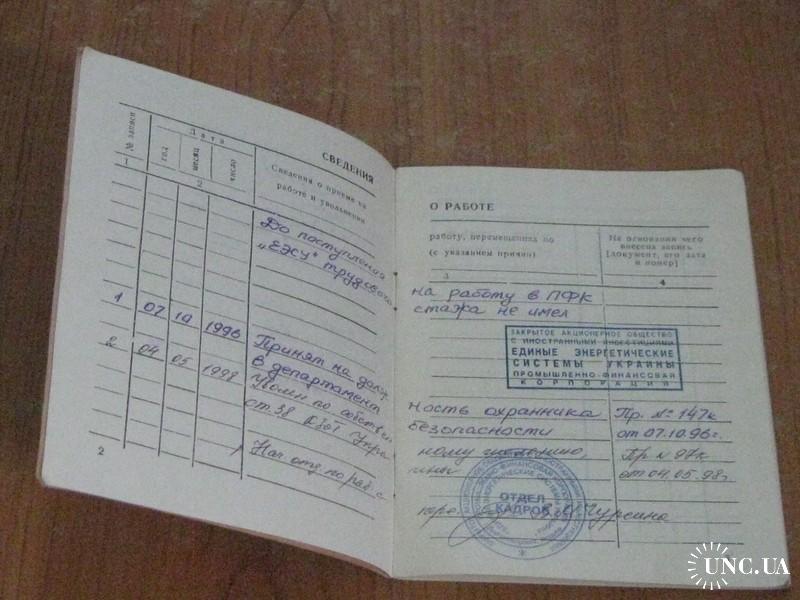 СВЕДЕНИЯ
№ записи
Дата
год
месяц
число
Сведения о приеме на
работе и увольнении
1
2
До поступления
„ЕЭСУ" трудового
1 07 10 1996 Принят на долж
в департамент
2 04 05 1998 Уволен по собствен
ст 38 КЗоТ Укра
Нач отд по раб с
2
О РАБОТЕ
работу, перемещениях по
(с указанием причин)
На основании чего
внесена запись
[документ, его дата
и номер]
3
4
на работу в ПФК
стажа не имел
ЗАКРЫТОЕ АКЦИОНЕРНОЕ ОБЩЕСТВО
С ИНОСТРАННЫМИ ИНВЕСТИЦИЯМИ
ЕДИНЫЕ ЭНЕРГЕТИЧЕСКИЕ
СИСТЕМЫ УКРАИНЫ
ПРОМЫШЛЕННО-ФИНАНСОВАЯ
КОРПОРАЦИЯ
ность охранника Пр. № 147к
безопасности от 07.10.96г.
ному желанию, Пр № 97к
ины от 04.05.98г
ОТДЕЛ
КАДРОВ
перс. Чурсина
UNC.UA